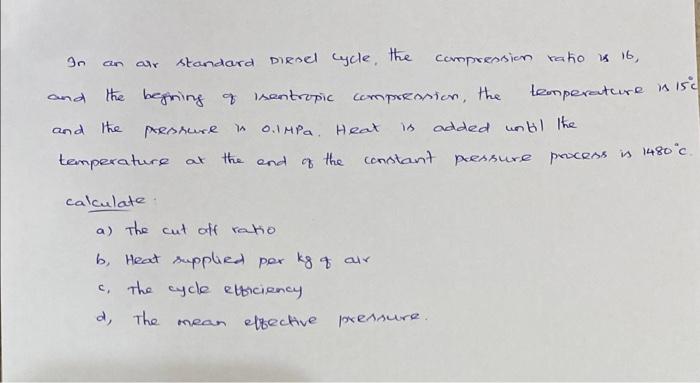 In an air standard DIESEL cycle, the compression ratio is 16,
and the begining of isentropic compression, the temperature is 15°c
and the pressure is 0.1MPa. Heat is added until the
temperature at the end of the constant pressure process is 1480°c.
calculate:
a) The cut off ratio
b, Heat supplied per kg of air
c, The cycle efficiency
d, The mean effective pressure.